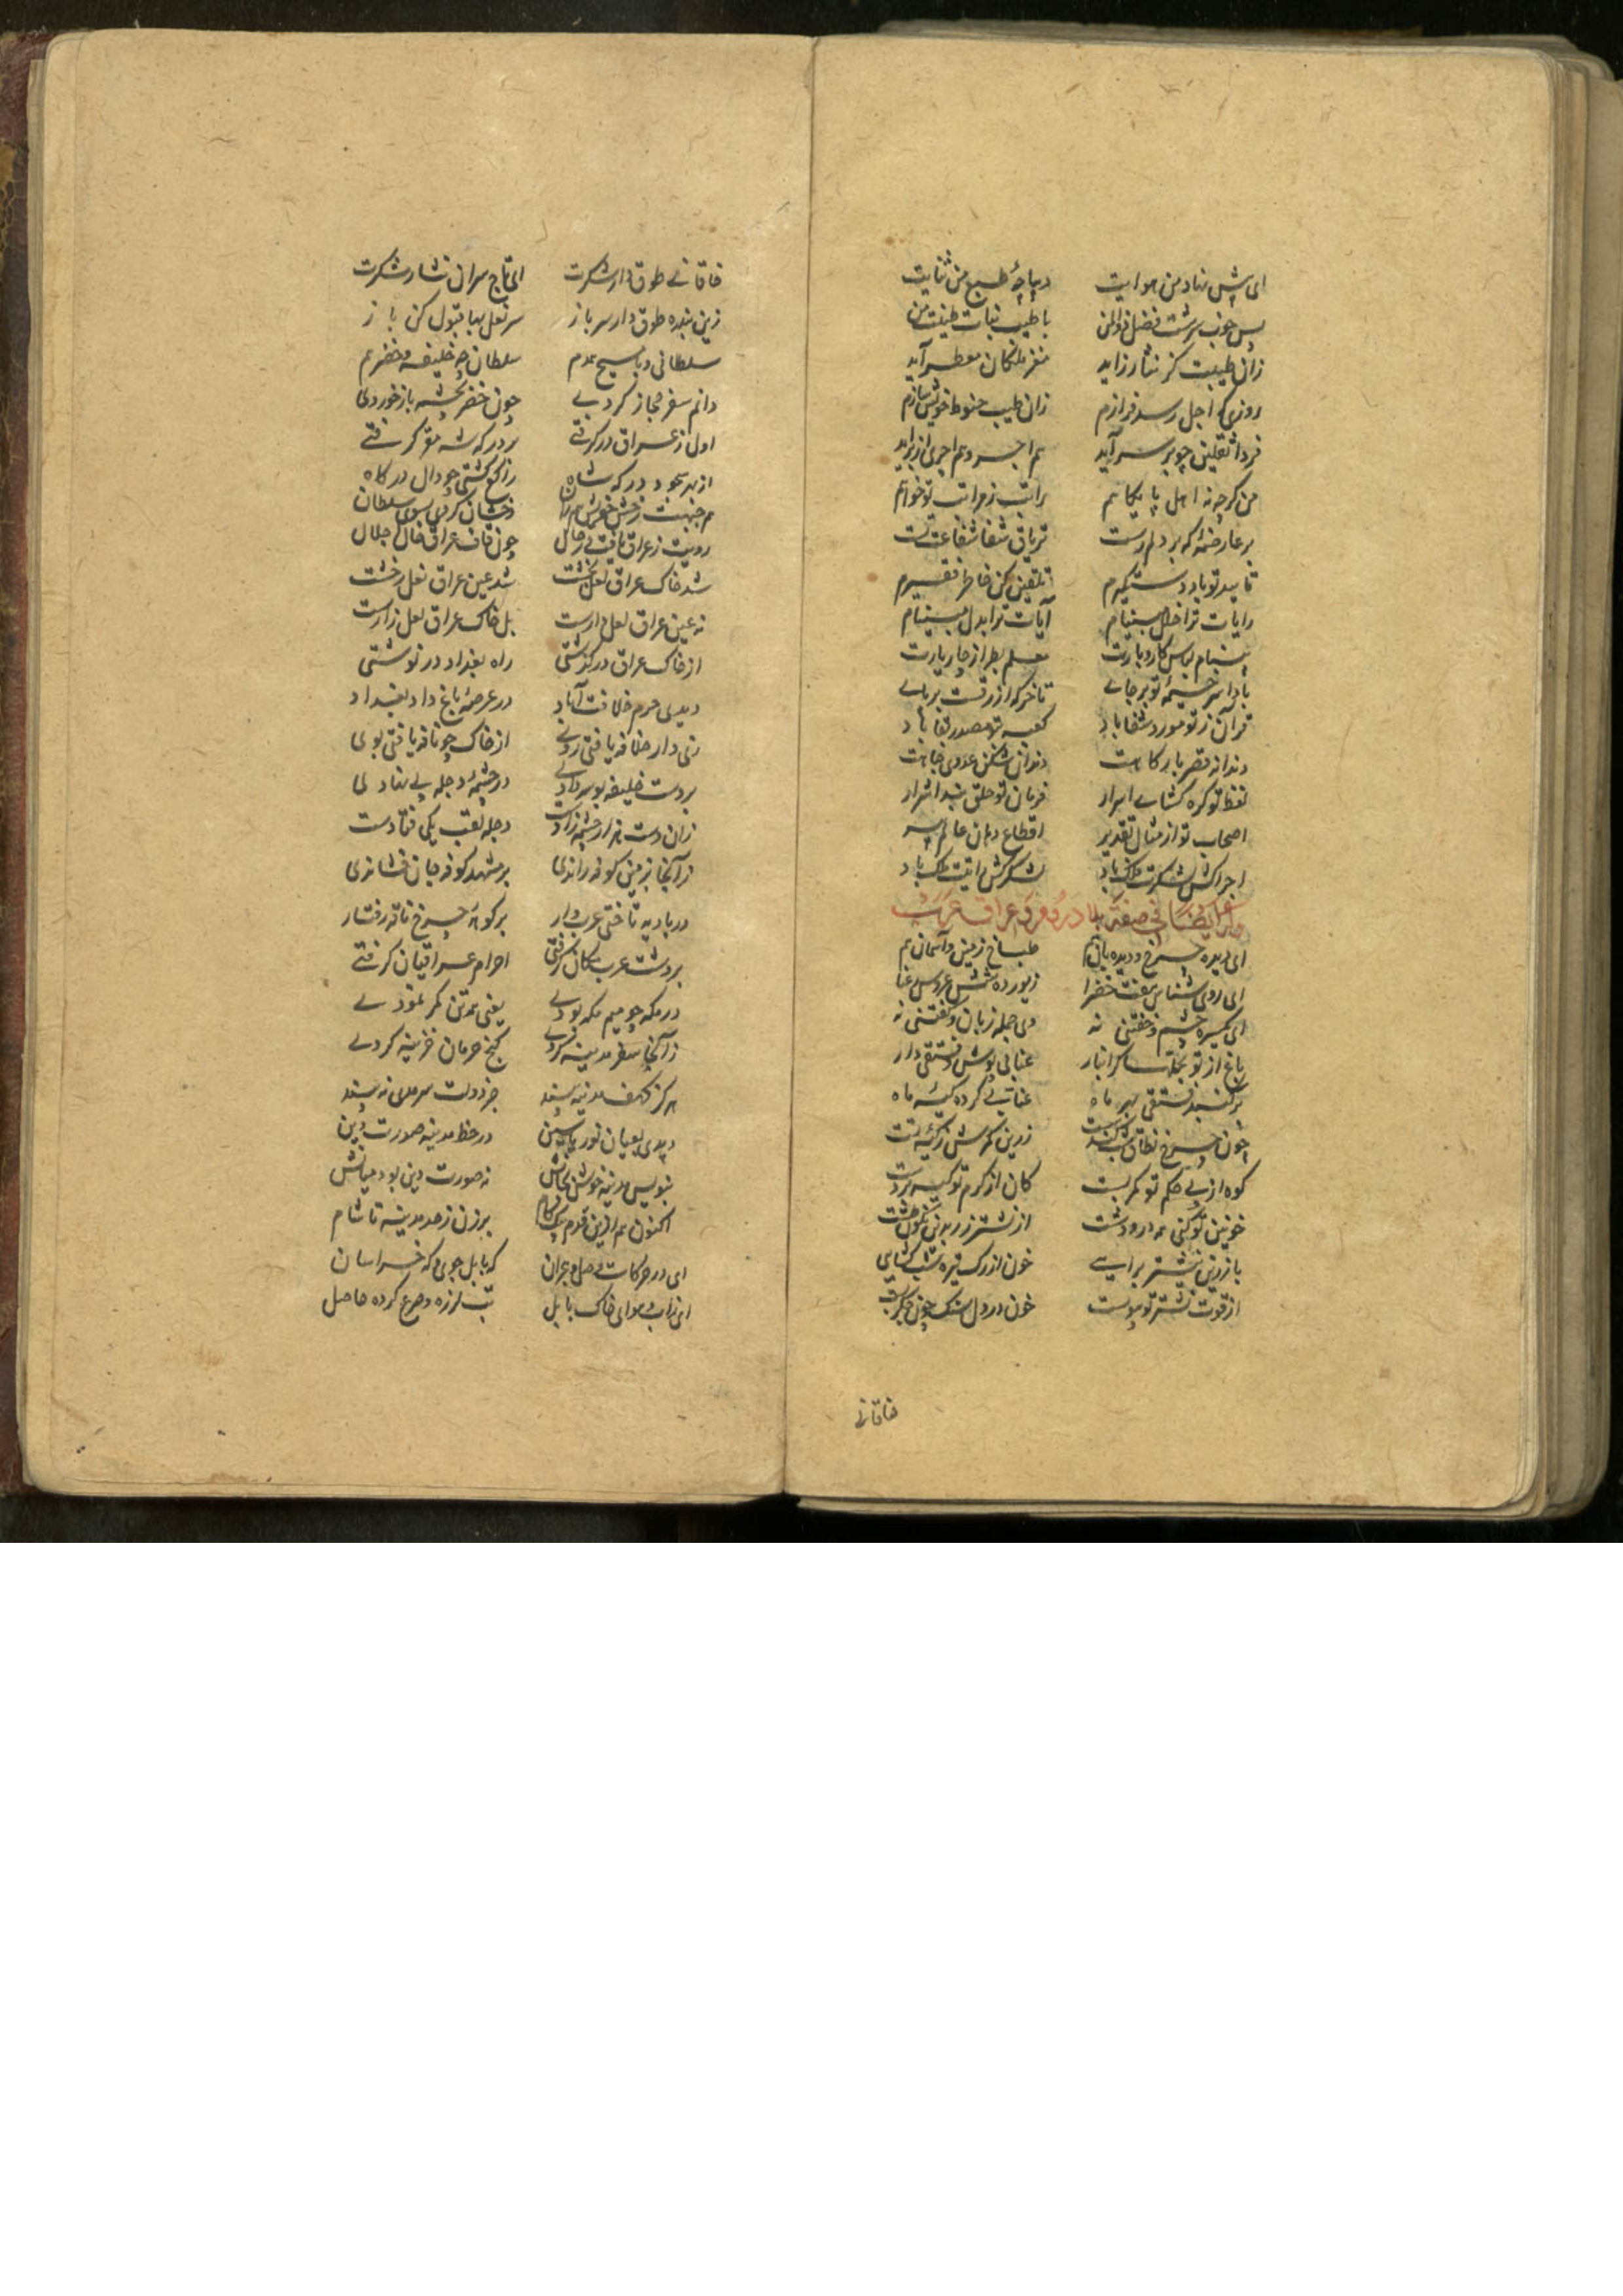 ای پیش نهاد من هوایت دیباچهٔ طبع من ثنایت
پس چون بسرشت فضل ذوالمن با طیب نبات طینت من
زان طیبت کز نثار زاید مغز ملکان معطر آید
روزی که اجل رسد فرازم زان طیب حنوط خویش سازم
فردا ثقلین چو بر سر آید هم اجر و هم اجری از بر آید
من کرچه نه اهل پایکاهم راتب ز مراتب تو خواهم
بر عارضه که بر دلم رست تریاق شفا شفاعت تست
تایید تو باد دستکیرم تلقین کن خاطر فقیرم
رایات ترا خلل مبینام آیات ترا بدل مبینام
بینام لباس کار و بارت معلم بطراز چار یارت
بادا سر خیمهٔ تو بر جای تا خرکه ازرقست بر پای
قرآن ز تو مورد شفا باد کعبه ز تو مصدر لقا باد
دندانه قصر بارکاهت دندان شکن عدوی جاهت
لفظ تو کره کشای اسرار فرمان تو حلق بند اشرار
اصحاب تو از مثال تقدیر اقطاع دهان عالم پیر
اجراکش لشکرت فلک باد لشکرکش رایتت ملک باد
ای دیده چرخ و دیده بان هم طباخ زمین و آسمان هم
ای روی شناس هفت خضرا زیور ده شش عروس غنا
ای یکسره چشم و خفتنی نه وی جمله زبان و کفتنی نه
باغ از تو بجلت سکرانبار عنابی پوش و فستقی دار
بر کنبد فستقی بهر ماه عنابی کرده کیسه ماه
چون چرخ نطاق زرین کمرش ز کیسه تست
کوه از پی حکم تو کمر بست کان از کرم تو کیسه بر دست
خونین تو کنی همه در و دشت از نشتر زر بدین نکون طشت
با زرین نیشتر برآیی خون از رک تیره شب کشایی
از قوت نشتر تو پیوست خون در دل سنک چون جکر بست
خاقانی
خاقانی طوق دار شکرت ای تاج سران نثار شکرت
زین بنده طوق دار سرباز سر نعل بها قبول کن باز
سلطانی و با مسیح همدم سلطان چه خلیفه و خضر هم
دانم سفر مجاز کردی چون خضر بچشمه باز خوردی
اول ز عراق در کرفتی بر درکه شه مقر کرفتی
از بهر سجود درکه شاه راکع کشتی چو دال درکاه
هم جبهت رخشان کردی سوی سلطان
رویت ز عراق یافت بر حال چون قاف عراق خال جلال
شد خاک عراق لعل بخشت شد عین عراق نعل رخشت
نه عین عراق لعل دارست بل خاک عراق لعل زارست
از خاک عراق در کذشتی راه بغداد در نوشتی
دیدی حرم خلافت آباد در عرصهٔ باغ داد بغداد
زی دار خلافه یافتی روی از خاک چو نافه یافتی بوی
بر دست خلیفه بوسه دادی در چشمهٔ دجله پی نهادی
زان دست هزار چشمه زادست دجله لقب یکی فتادست
زانجا بزمین کوفه راندی بر مشهد کوفه جان فشاندی
در بادیه تاختی عرب وار بر کوههٔ چرخ ناقه رفتار
بر دشت عرب مکان کرفتی احرام عراقیان کرفتی
در مکه چو میم مکه بودی یعنی همه تن کمر نمودی
زانجا سفر مدینه کردی کنج حرمان خزینه کردی
هر کز کنف مدینه بیند جز دولت سرمدی نه بیند
دیدی بعیان نور یاسین در خط مدینه صورت دین
بنویس مدینه خوش بخوانش نه صورت دین بود میانش
اکنون هم ازین قدم بیک کام برزن ز حد مدینه تا شام
ای در حرکات وصل و هجران که بابل جوی و که خراسان
ای زاب و هوای خاک بابل تب لرزه و صرع کرده حاصل